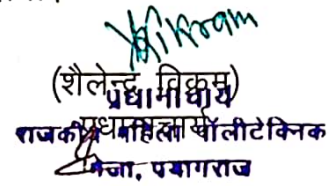 Vikram
(शैलेन्द्र विक्रम)
प्रधानाचार्य
प्रधानाचार्य
राजकीय महिला पॉलीटेक्निक
प्रयागराज